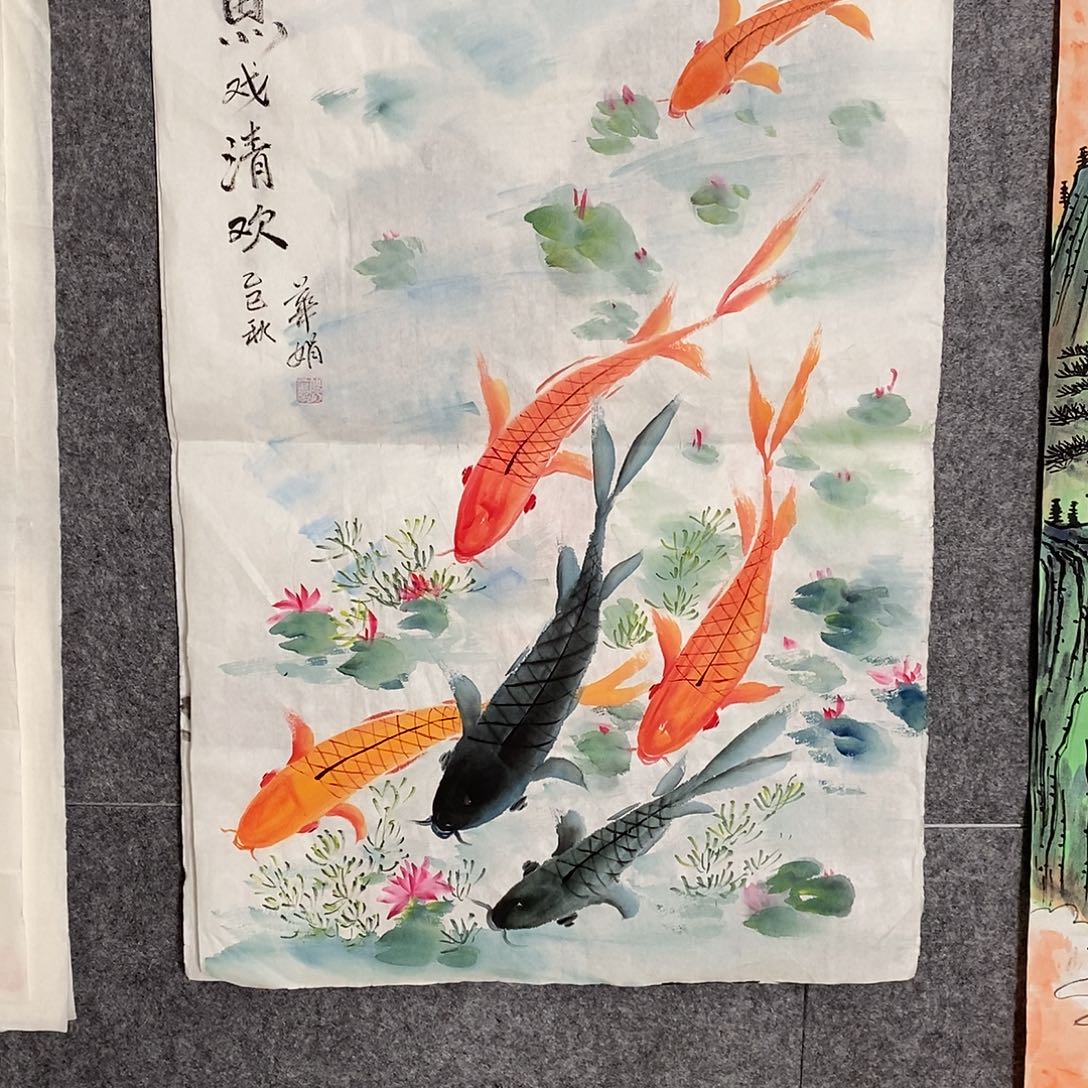 鱼戏清欢
乙巳秋
華娟